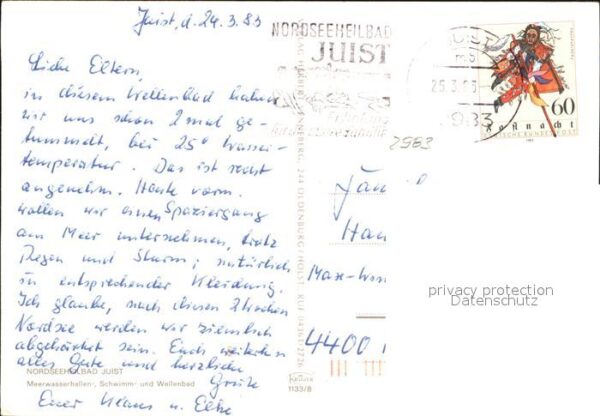 Juist, d. 24.3.83
Liebe Eltern,
in diesem Wellenbad haben
wir uns schon 2 mal ge-
tummelt, bei 25° Wasser-
temperatur. Das ist recht
angenehm. Heute vorm.
wollen wir einen Spaziergang
am Meer unternehmen, trotz
Regen und Sturm; natürlich
in entsprechender Kleidung.
Ich glaube, nach diesen 2 Wochen
Nordsee werden wir ziemlich
abgehärtet sein. Euch weiterhin
alles Gute und herzliche
Grüße
Euer Klaus u. Elke
NORDSEEHEILBAD JUIST
Meerwasserhallen-, Schwimm- und Wellenbad
NORDSEEHEILBAD
JUIST
25.3.83
2983
60
fastnacht
DEUTSCHE BUNDESPOST
2983
Fam
Han
Max-
4400
1133/8
privacy protection
Datenschutz